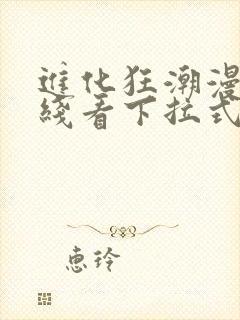 進化狂潮漫
綫看下拉式
惠玲